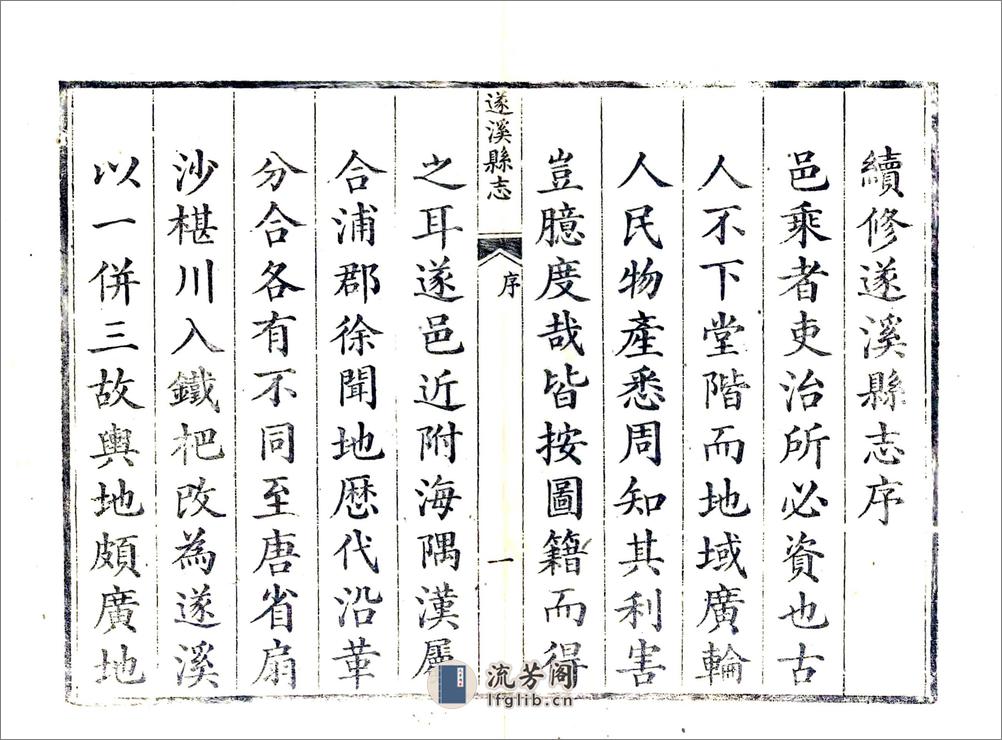 續修遂溪縣志序
邑乘者吏治所必資也古
人不下堂階而地域廣輪
人民物產悉周知其利害
豈臆度哉皆按圖籍而得
遂溪縣志
序
一
之耳遂邑近附海隅漢屬
合浦郡徐聞地歷代沿革
分合各有不同至唐省扇
沙椹川入鐵杷改為遂溪
以一併三故輿地頗廣地
流芳阁
lfglib.cn